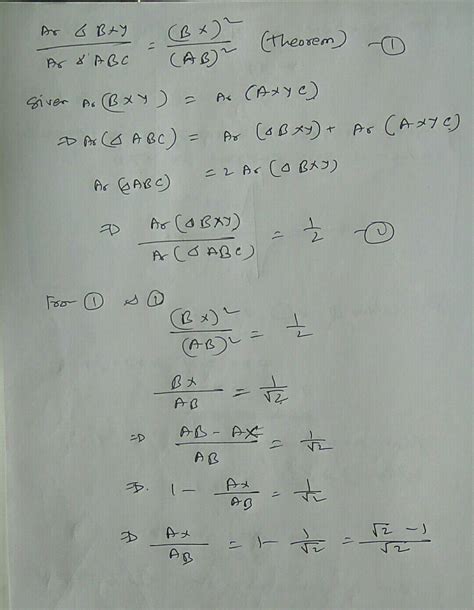 Ar Δ BXY / Ar Δ ABC = (BX)² / (AB)² (theorem) –①
Given Ar (BXY) = Ar (AXYC)
⇒ Ar(Δ ABC) = Ar (ΔBXY) + Ar (AXYC)
Ar (ΔABC) = 2 Ar (ΔBXY)
⇒ Ar (ΔBXY) / Ar (Δ ABC) = 1/2 –②
From ① & ②
(BX)² / (AB)² = 1/2
BX / AB = 1/√2
⇒ AB – AX / AB = 1/√2
⇒. 1 – AX / AB = 1/√2
⇒ AX / AB = 1 – 1/√2 = √2 – 1 / √2